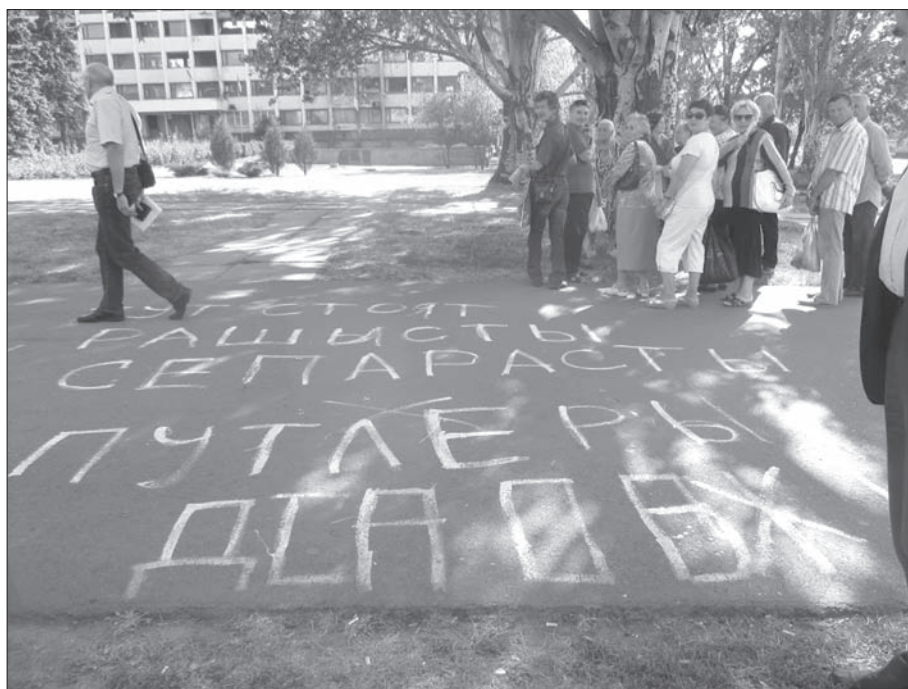 ТУТ СТОЯТ
РАШЫСТЫ
СЕПАРАСТЫ
ПУТЛЕРЫ